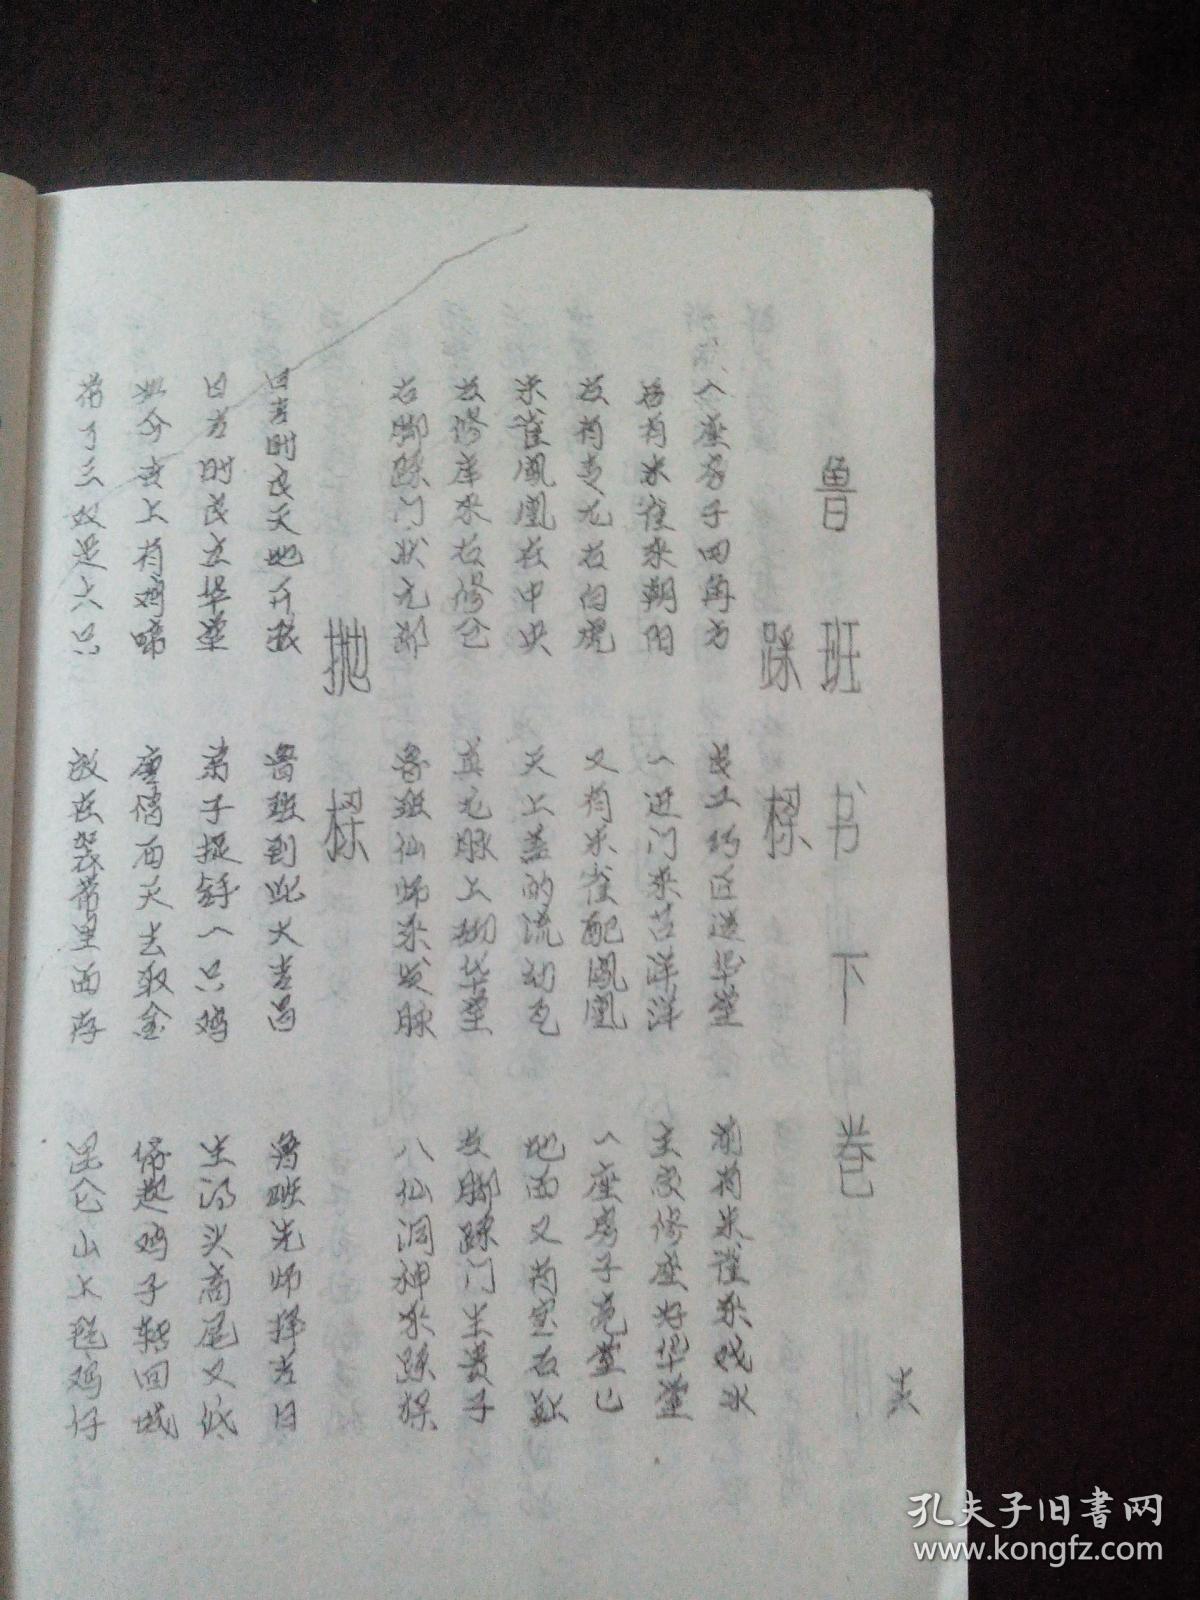 鲁班书下卷
踩樑
一座房子四角方 良工巧匠造华堂 前有朱雀来戏水
后有朱雀来朝阳 一进门来喜洋洋 主家修座好华堂
左有青龙右白虎 又有朱雀配凤凰 一座房子亮堂
朱雀凤凰在中央 天上盖的流 瓦 地面又有
左修库来右修仓 真龙脉上 华堂 左脚踩门生贵子
右脚踩门状元郎 鲁班仙师来发脉 八仙洞神来踩樑
抛樑
日吉时良天地开张 鲁班到此大吉昌 鲁班先师择吉日
日吉时良立华堂 弟子捉鋝一只鸡 生得头高尾又低
上有鸡啼 唐僧西天去取金 鸡子转回城
带了三双是六只 放在袈带里面存 昆仑山上 鸡仔
孔夫子旧书网
www.kongfz.com